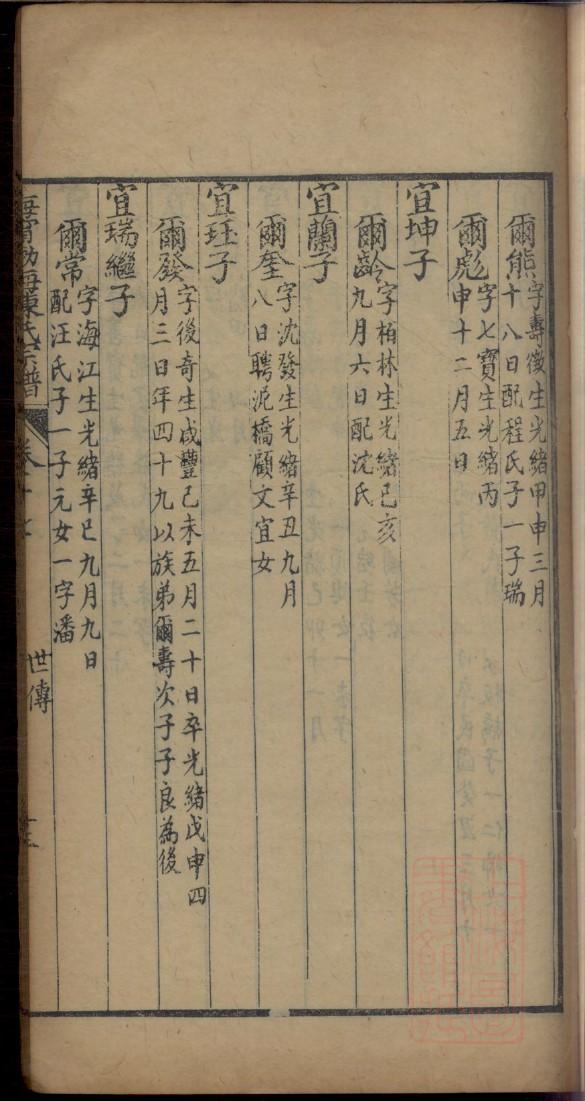 爾熊
字壽徵生光緒甲申三月
十八日配程氏子一子瑞
爾彪
字七寶生光緒丙
申十二月五日
宜坤子
爾齡
字栢林生光緒己亥
九月六日配沈氏
宜蘭子
爾奎
字沈發生光緒辛丑九月
八日聘泥橋顧文宜女
宜玨子
爾發
字後奇生咸豐己未五月二十日卒光緒戊申四
月三日年四十九以族弟爾壽次子子良為後
宜瑞繼子
爾常
字海江生光緒辛巳九月九日
配汪氏子一子元女一字潘
海寧渤海陳氏宗譜
世傳